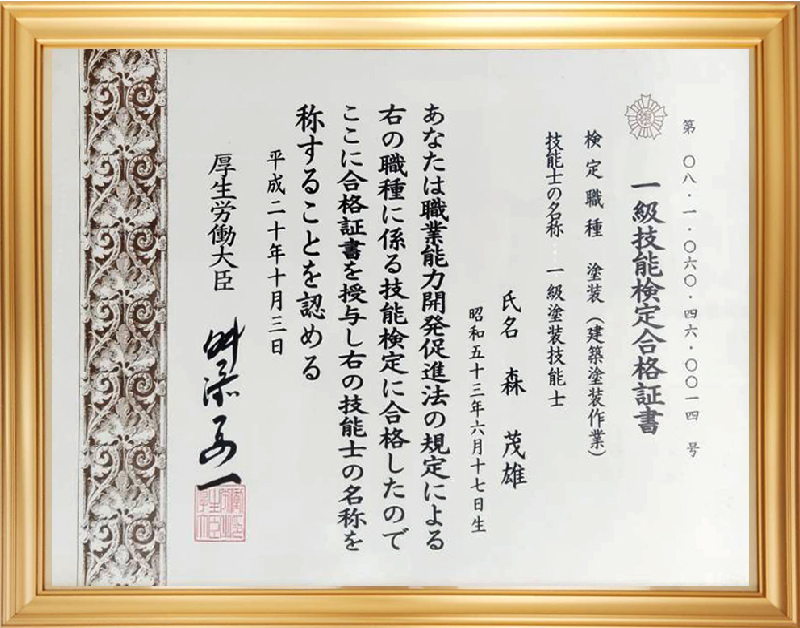 第〇八・一・〇六〇・四六・〇〇一四号
一級技能検定合格証書
検定職種 塗装(建築塗装作業)
技能士の名称 一級塗装技能士
氏名 森 茂雄
昭和五十三年六月十七日生
あなたは職業能力開発促進法の規定による
右の職種に係る技能検定に合格したので
ここに合格証書を授与し右の技能士の名称を
称することを認める
平成二十年十月三日
厚生労働大臣 舛添要一